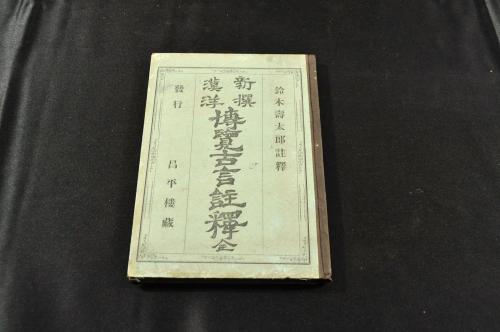 鈴木壽太郎註釋
新撰
漢洋
博覽古言註釋 全
發行 昌平樓藏